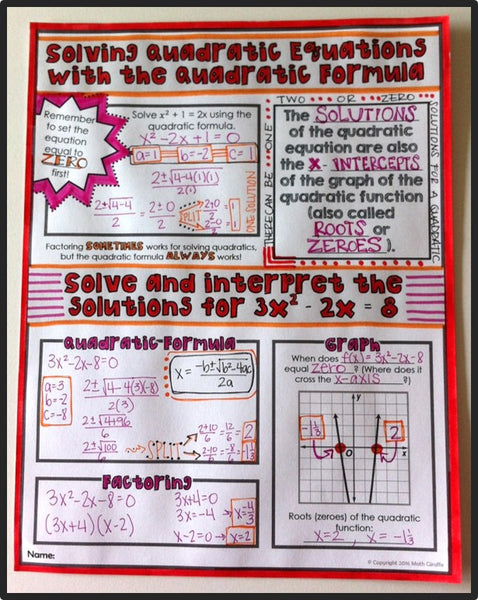 Solving Quadratic Equations
with the Quadratic Formula
Remember
to set the
equation
equal to
ZERO
first!
Solve x² + 1 = 2x using the
quadratic formula.
x² - 2x + 1 = 0
a=1 b=-2 c=1
2±√4-4(1)(1)
2(1)
2±√4-4
2
= 2±0
2
SPLIT
2+0
2
2-0
2
= 1
ONE SOLUTION
Factoring SOMETIMES works for solving quadratics,
but the quadratic formula ALWAYS works!
THERE CAN BE ONE
TWO OR ZERO
SOLUTIONS FOR A QUADRATIC
The SOLUTIONS
of the quadratic
equation are also
the X-INTERCEPTS
of the graph of the
quadratic function
(also called
ROOTS or
ZEROES).
Solve and interpret the
Solutions for 3x² - 2x = 8
Quadratic Formula
3x²-2x-8=0
a=3
b=-2
c=-8
x = -b±√b²-4ac
2a
2±√4-4(3)(-8)
2(3)
2±√4+96
6
2±√100
6
SPLIT
2+10
6
= 12
6
= 2
2-10
6
= -8
6
= -1⅓
Factoring
3x²-2x-8=0
(3x+4)(x-2)
3x+4=0
3x=-4 → x=-4/3
x-2=0 → x=2
Graph
When does f(x) = 3x²-2x-8
equal zero? (Where does it
cross the x-axis?)
y
-1⅓
2
O
x
Roots (zeroes) of the quadratic
function:
x=2, x = -1⅓
Name:
© Copyright 2016 Math Giraffe